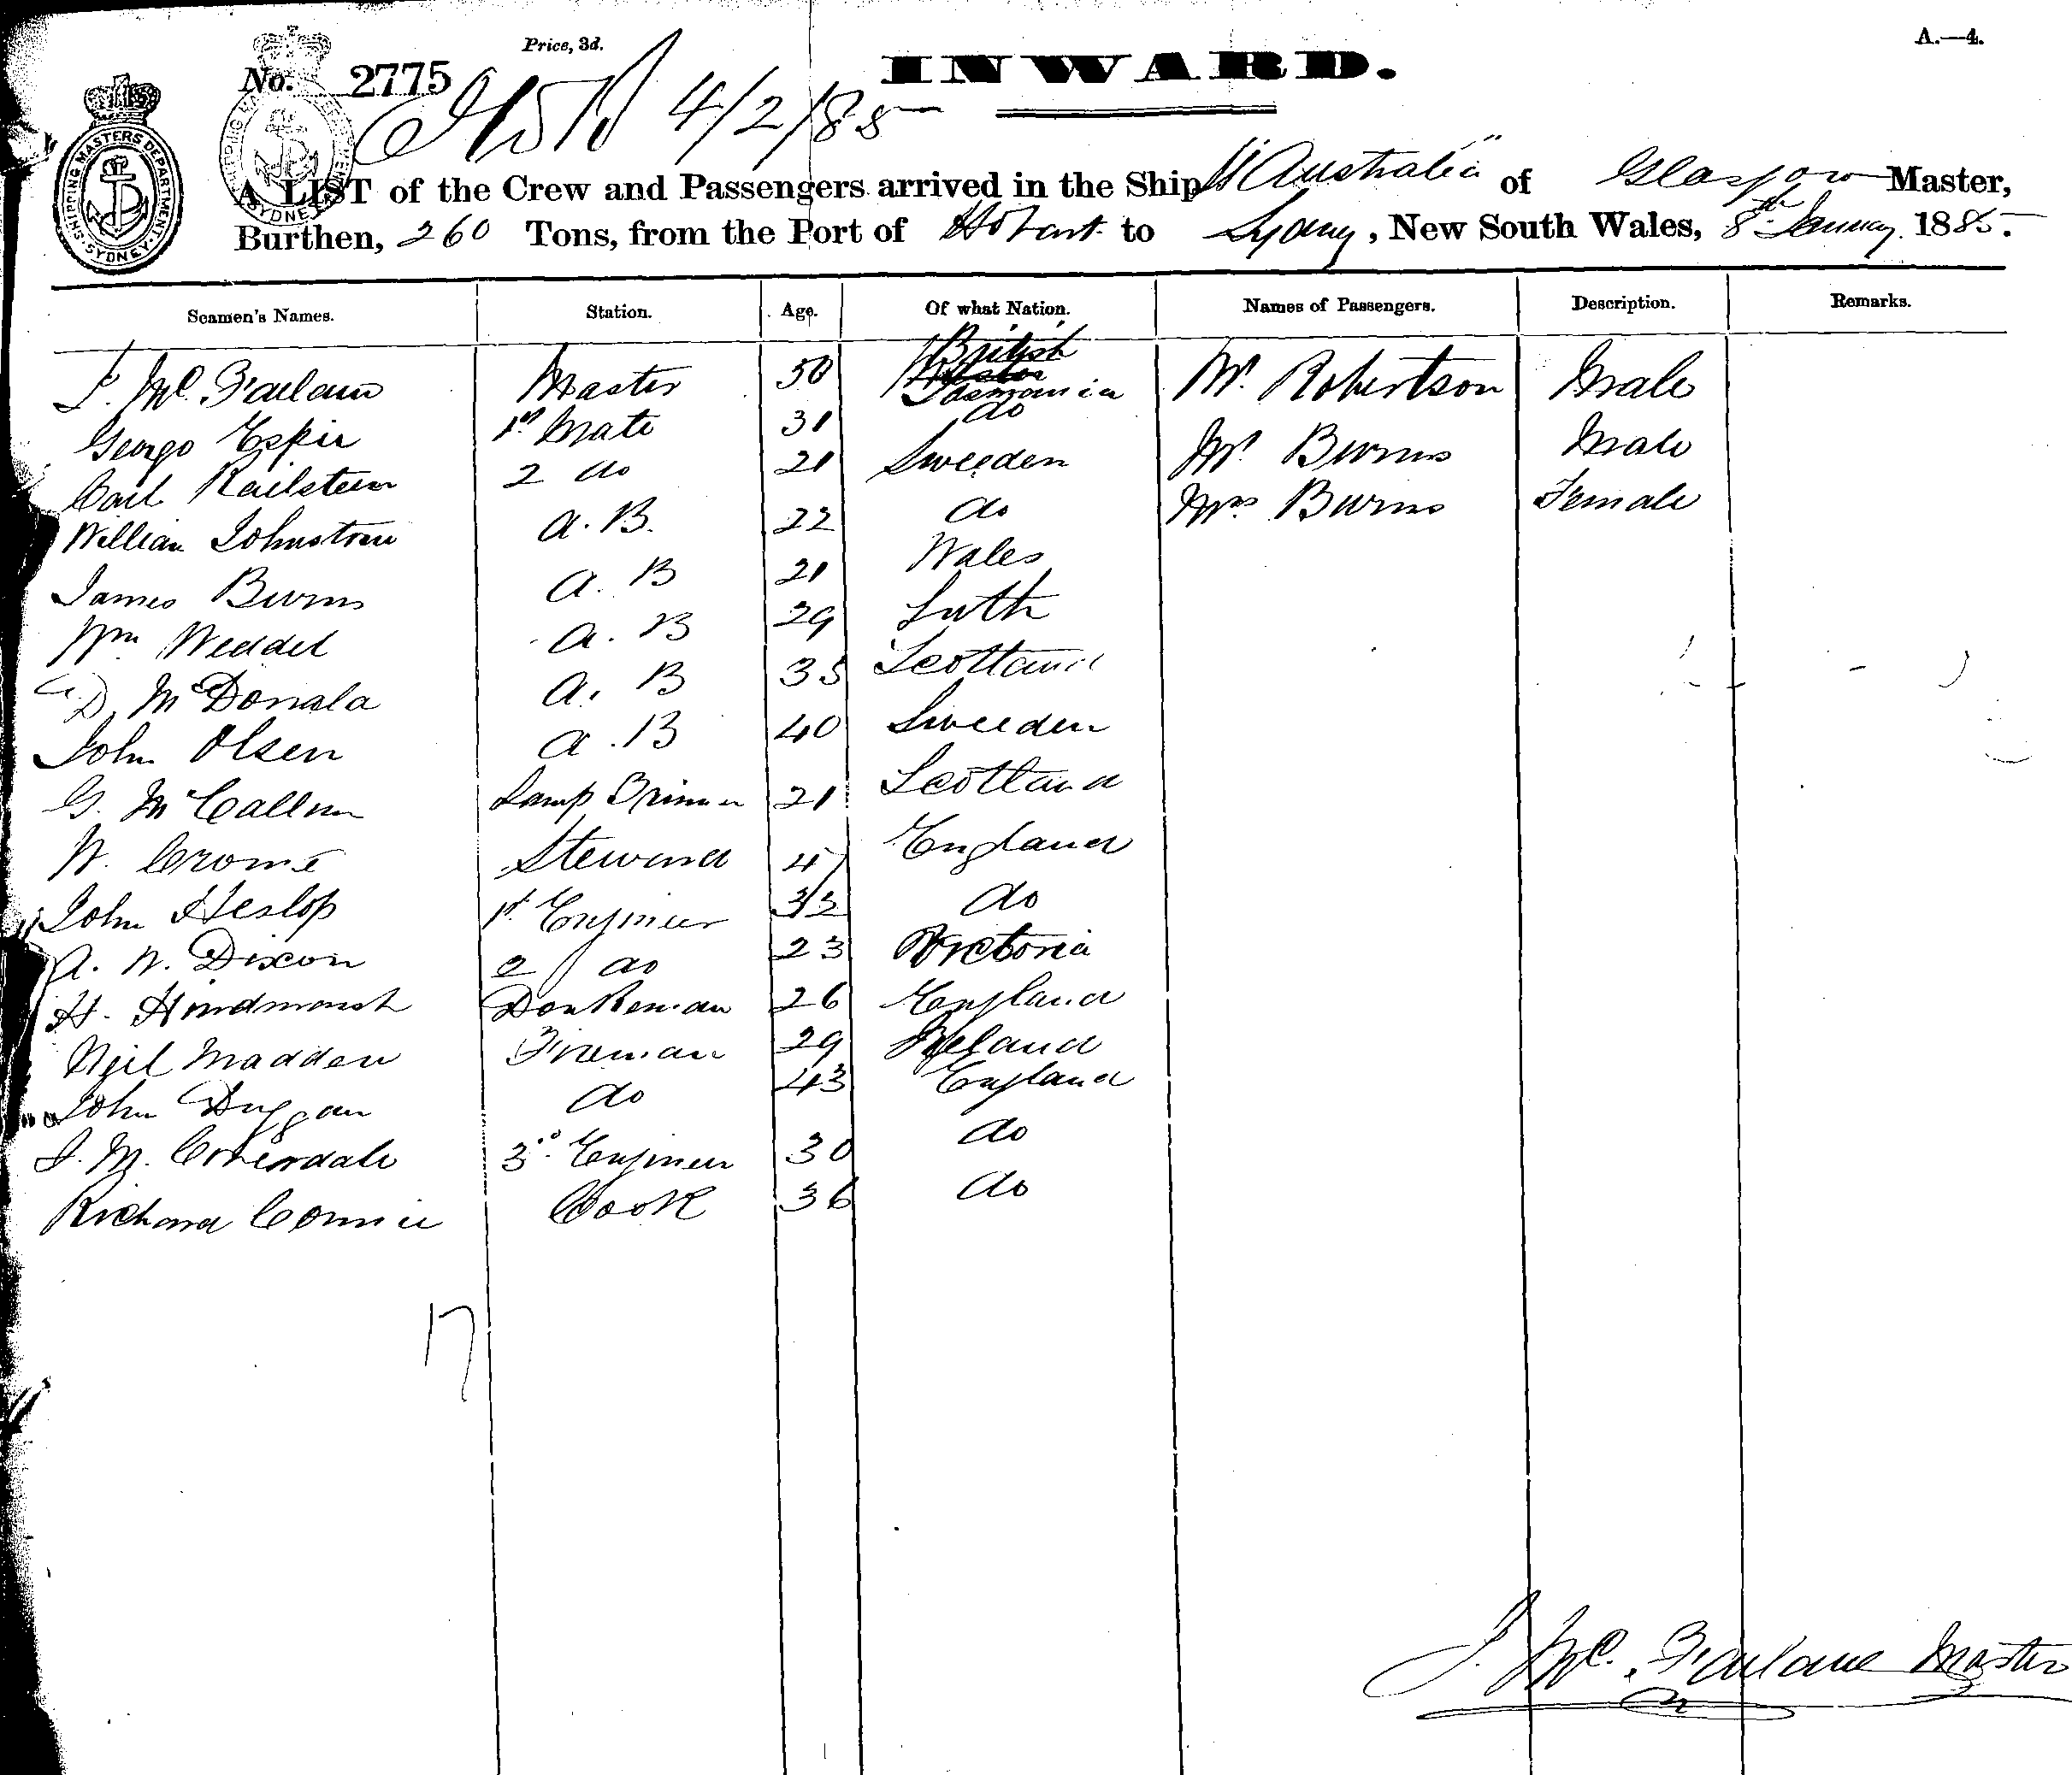 Price, 3d.
A.—4.
No. 2775
INWARD.
4/2/85
SHIPPING MASTERS DEPARTMENT. SYDNEY.
A LIST of the Crew and Passengers arrived in the Ship "Australia" of Glasgow Master,
Burthen, 260 Tons, from the Port of Hobart to Sydney, New South Wales, 8th January 1885.
Seamen's Names. Station. Age. Of what Nation. Names of Passengers. Description. Remarks.
J. Mc.Farlane Master 50 British Tasmania Mr. Robertson Male
George Espie 1st Mate 31 do Mr. Burns Male
Carl 2 do 21 Sweeden Mrs Burns Female
William Johnstone A.B. 22 do
James Burns A.B 21 Wales
Wm Weddel A.B 29 Leith
D McDonald A.B 35 Scotland
John Olsen A.B 40 Sweeden
G. McCallum Lamp Trimmer 21 Scotland
W. Crome Steward 47 England
John Heslop 1st Engineer 33 do
A. W. Dixon 2 do 23 Victoria
H. Hindmarsh Donkeman 26 England
Neil Madden Fireman 29 Ireland
John Duggan do 43 England
J. M. Coverdale 3rd Engineer 30 do
Richard Cook 36 do
17
J. Mc.Farlane Master